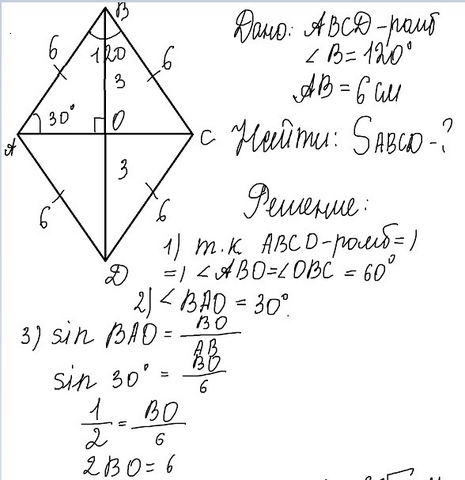 B
120
6
6
3
30°
O
A
C
3
6
6
D
Дано: ABCD-ромб
∠B=120°
AB=6см
Найти: SABCD-?
Решение:
1) т.к ABCD-ромб=)
=) ∠ABO=∠OBC = 60°
2) ∠BAO = 30°.
3) sin BAO = BO/AB
sin 30° = BO/6
1/2 = BO/6
2BO=6